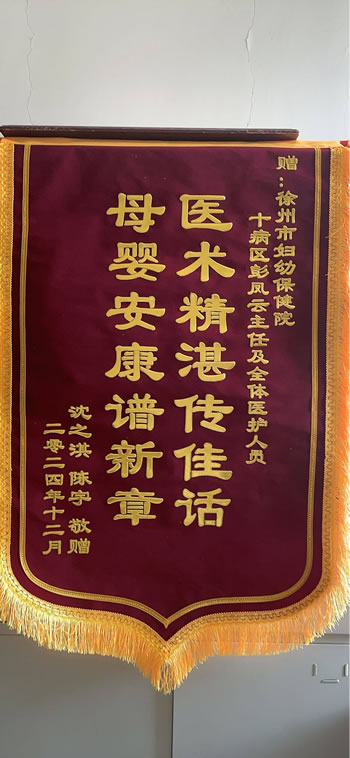 赠：徐州市妇幼保健院
十病区彭凤云主任及全体医护人员
医术精湛传佳话
母婴安康谱新章
沈之淇 陈宇 敬赠
二零二四年十二月